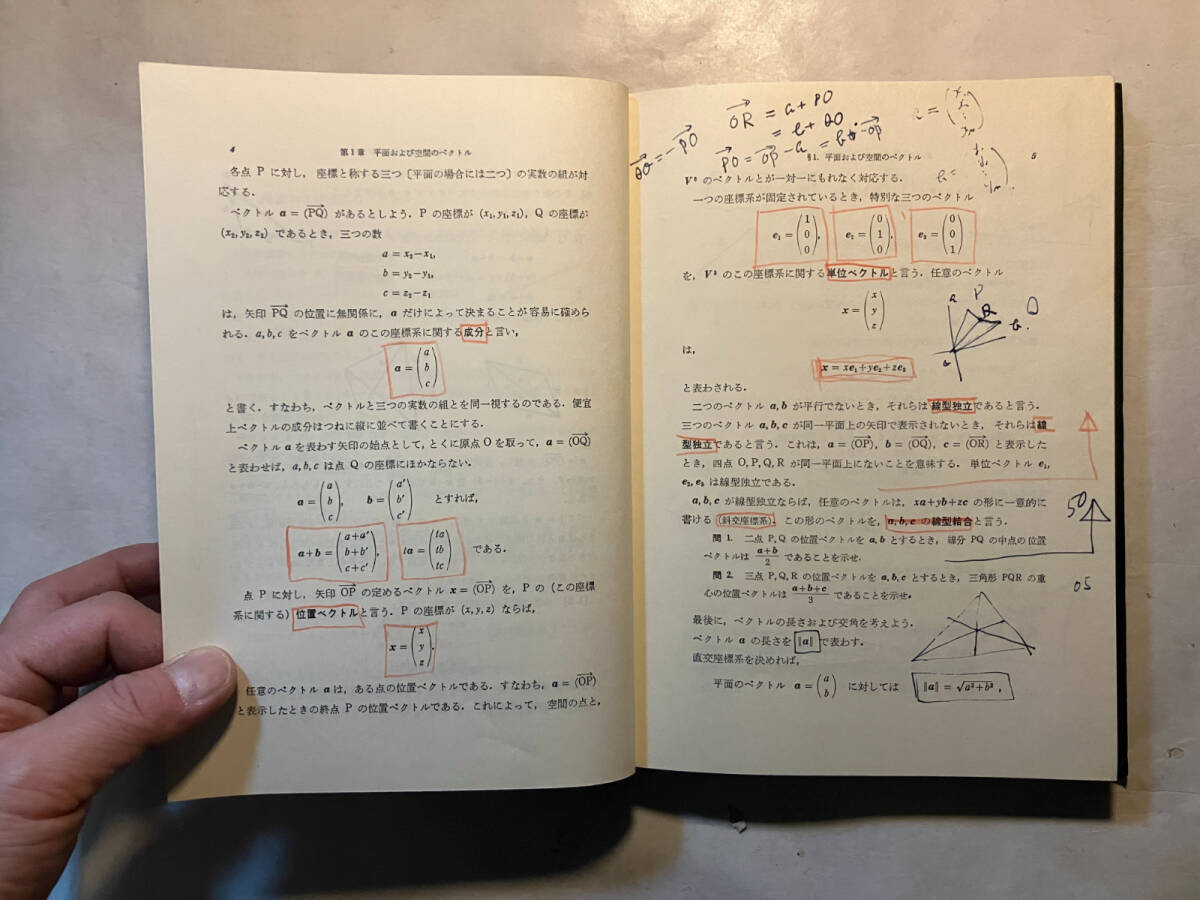 4
第1章 平面および空間のベクトル
各点 P に対し，座標と称する三つ〔平面の場合には二つ〕の実数の組が対
応する．
ベクトル a = (PQ→) があるとしよう．P の座標が (x₁, y₁, z₁)，Q の座標が
(x₂, y₂, z₂) であるとき，三つの数
a = x₂−x₁,
b = y₂−y₁,
c = z₂−z₁
は，矢印 PQ→ の位置に無関係に，a だけによって決まることが容易に確めら
れる．a, b, c をベクトル a のこの座標系に関する成分と言い，
a = (a b c)
と書く．すなわち，ベクトルと三つの実数の組とを同一視するのである．便宜
上ベクトルの成分はつねに縦に並べて書くことにする．
ベクトル a を表わす矢印の始点として，とくに原点 O を取って，a = (OQ→)
と表わせば，a, b, c は点 Q の座標にほかならない．
a = (a b c), b = (a′ b′ c′) とすれば，
a+b = (a+a′ b+b′ c+c′), ta = (ta tb tc) である．
点 P に対し，矢印 OP→ の定めるベクトル x = (OP→) を，P の（この座標
系に関する）位置ベクトルと言う．P の座標が (x, y, z) ならば，
x = (x y z).
任意のベクトル a は，ある点の位置ベクトルである．すなわち，a = (OP→)
と表示したときの終点 P の位置ベクトルである．これによって，空間の点と，
OR→ = a + PO
§1. 平面および空間のベクトル
5
V³ のベクトルとが一対一にもれなく対応する．
一つの座標系が固定されているとき，特別な三つのベクトル
e₁ = (1 0 0), e₂ = (0 1 0), e₃ = (0 0 1)
を，V³ のこの座標系に関する単位ベクトルと言う．任意のベクトル
x = (x y z)
は，
x = xe₁+ye₂+ze₃
と表わされる．
二つのベクトル a, b が平行でないとき，それらは線型独立であると言う．
三つのベクトル a, b, c が同一平面上の矢印で表示されないとき，それらは線
型独立であると言う．これは，a = (OP→), b = (OQ→), c = (OR→) と表示した
とき，四点 O, P, Q, R が同一平面上にないことを意味する．単位ベクトル e₁,
e₂, e₃ は線型独立である．
a, b, c が線型独立ならば，任意のベクトルは，xa+yb+zc の形に一意的に
書ける（斜交座標系）．この形のベクトルを，a, b, c の線型結合と言う．
50
問 1． 二点 P, Q の位置ベクトルを a, b とするとき，線分 PQ の中点の位置
ベクトルは (a+b)/2 であることを示せ．
問 2． 三点 P, Q, R の位置ベクトルを a, b, c とするとき，三角形 PQR の重
心の位置ベクトルは (a+b+c)/3 であることを示せ．
05
最後に，ベクトルの長さおよび交角を考えよう．
ベクトル a の長さを ‖a‖ で表わす．
直交座標系を決めれば，
平面のベクトル a = (a b) に対しては ‖a‖ = √a²+b²,